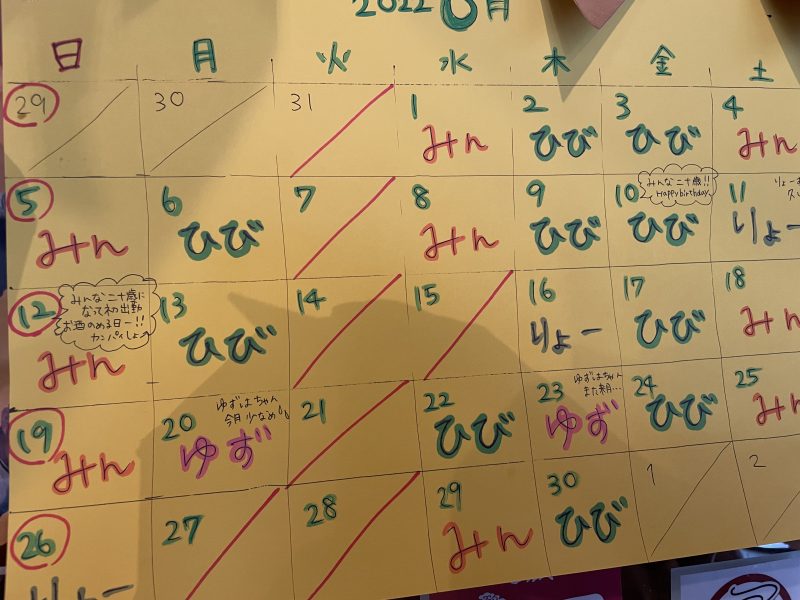 2022 6月
日 月 火 水 木 金 土
29 30 31 1 2 3 4
みん ひび ひび みん
5 6 7 8 9 10 11
みんな二十歳!!
Happy birthday
みん ひび みん ひび ひび りょー
12 13 14 15 16 17 18
みんな二十歳に
なって初出勤
お酒のめる日ー!!
カンパイしよ
みん ひび りょー ひび みん
19 20 21 22 23 24 25
ゆずはちゃん
今月少なめ
ゆずはちゃん
また来月…
みん ゆず ひび ゆず ひび みん
26 27 28 29 30 1 2
りょー みん ひび